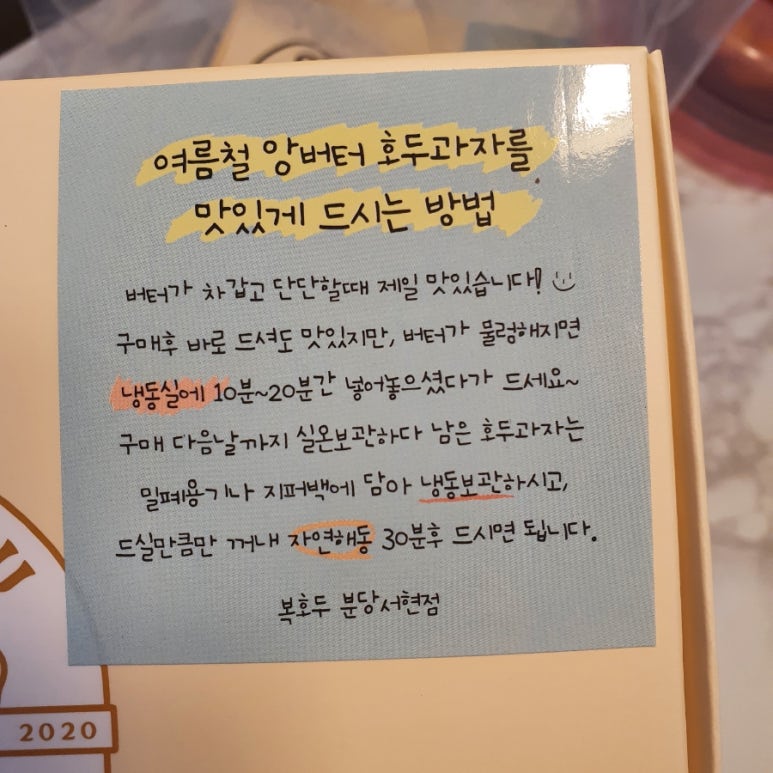 여름철 앙버터 호두과자를
맛있게 드시는 방법
버터가 차갑고 단단할때 제일 맛있습니다!
구매후 바로 드셔도 맛있지만, 버터가 물렁해지면
냉동실에 10분~20분간 넣어놓으셨다가 드세요~
구매 다음날까지 실온보관하다 남은 호두과자는
밀폐용기나 지퍼백에 담아 냉동보관하시고,
드실만큼만 꺼내 자연해동 30분후 드시면 됩니다.
복호두 분당서현점
2020